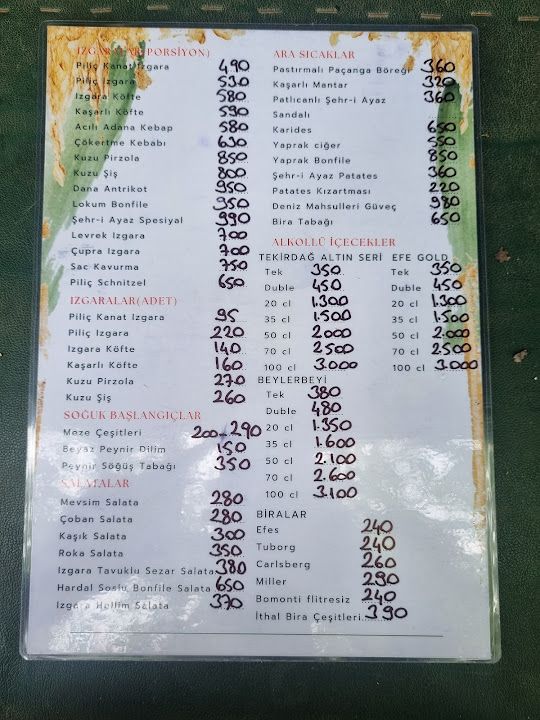 IZGARALAR(PORSİYON)
Piliç Kanat Izgara 490
Piliç Izgara 530
Izgara Köfte 580
Kaşarlı Köfte 590
Acılı Adana Kebap 580
Çökertme Kebabı 630
Kuzu Pirzola 850
Kuzu Şiş 800
Dana Antrikot 950
Lokum Bonfile 950
Şehr-i Ayaz Spesiyal 990
Levrek Izgara 700
Çupra Izgara 700
Sac Kavurma 750
Piliç Schnitzel 650
IZGARALAR(ADET)
Piliç Kanat Izgara 95
Piliç Izgara 220
Izgara Köfte 140
Kaşarlı Köfte 160
Kuzu Pirzola 270
Kuzu Şiş 260
SOĞUK BAŞLANGIÇLAR
Meze Çeşitleri 200-290
Beyaz Peynir Dilim 150
Peynir Söğüş Tabağı 350
SALATALAR
Mevsim Salata 280
Çoban Salata 280
Kaşık Salata 300
Roka Salata 350
Izgara Tavuklu Sezar Salata 380
Hardal Soslu Bonfile Salata 650
Izgara Hellim Salata 370
ARA SICAKLAR
Pastırmalı Paçanga Böreği 360
Kaşarlı Mantar 320
Patlıcanlı Şehr-i Ayaz 360
Sandalı
Karides 650
Yaprak ciğer 550
Yaprak Bonfile 850
Şehr-i Ayaz Patates 360
Patates Kızartması 220
Deniz Mahsulleri Güveç 980
Bira Tabağı 650
ALKOLLÜ İÇECEKLER
TEKİRDAĞ ALTIN SERİ EFE GOLD
Tek 350 Tek 350
Duble 450 Duble 450
20 cl 1.300 20 cl 1.300
35 cl 1.500 35 cl 1.500
50 cl 2000 50 cl 2.000
70 cl 2500 70 cl 2500
100 cl 3.000 100 cl 3.000
BEYLERBEYİ
Tek 380
Duble 480
20 cl 1.350
35 cl 1.600
50 cl 2.100
70 cl 2.600
100 cl 3.100
BİRALAR
Efes 240
Tuborg 240
Carlsberg 260
Miller 290
Bomonti flitresiz 240
İthal Bira Çeşitleri 390